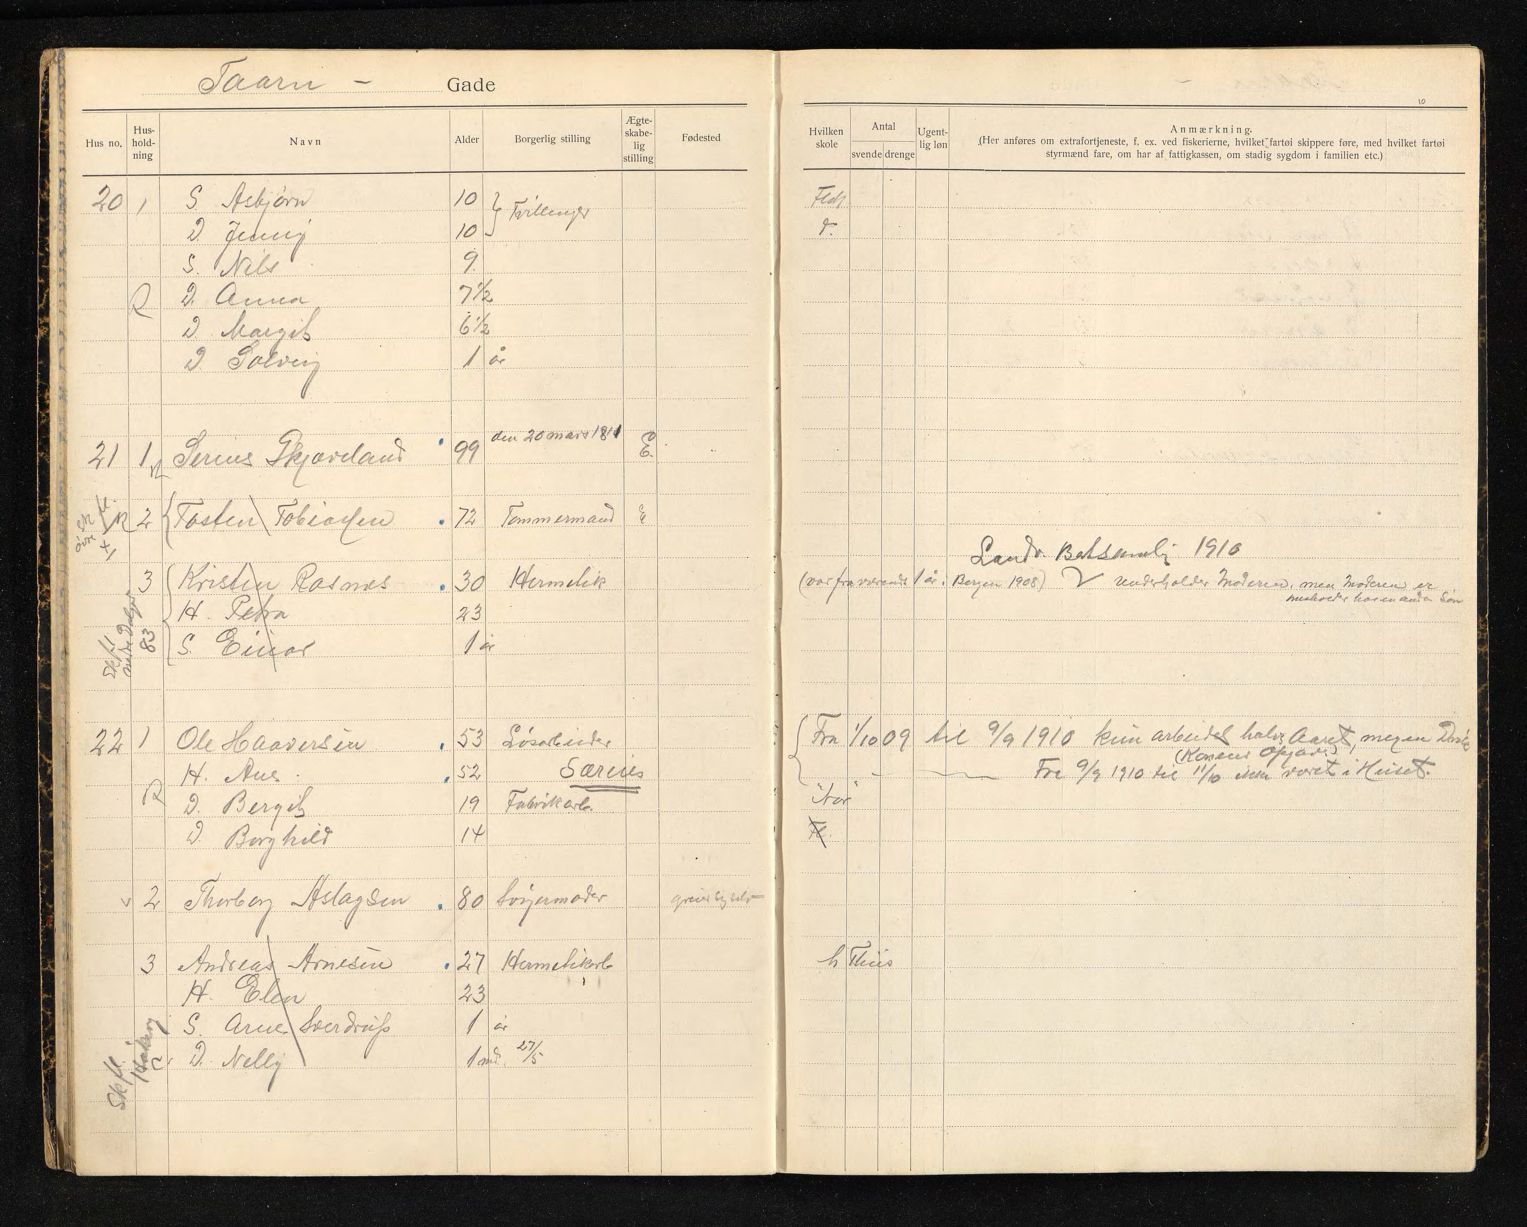 Taarn - Gade
Hus no. Hus-hold-ning Navn Alder Borgerlig stilling Ægte-skabe-lig stilling Fødested
Hvilken skole Antal svende drenge Ugent-lig løn Anmærkning.
(Her anføres om extrafortjeneste, f. ex. ved fiskerierne, hvilket fartøi skippere føre, med hvilket fartøi
styrmænd fare, om har af fattigkassen, om stadig sygdom i familien etc.)
20 1 S Asbjørn 10 } Tvillinger
D. Jenny 10
S. Nils 9
R D. Anna 7 1/2
D Margit 6 1/2
D Solveig 1 år
21 1 Serius Tkjæveland 99 den 20 mars 1811 E.
2 Tosten Tobiassen 72 Tømmermand E
Landv. 1910
3 Kristen Rosnæs 30 Hermetik (var fraværende 1 år. Bergen 1908) V underholder Moderen, men Moderen er
H. Petra 23
S. Einar 1 år
83
22 1 Ole Haaversen 53 Løsarbeider Fra 1/10 09 til 9/9 1910 kun arbeidet halve Aaret, megen
(Konens Opgave)
H. Ane 52 Særeies Fra 9/9 1910 til 11/10 ikke været i Huset.
R D. Bergit 19 Fabrikarb. "Nor"
D. Borghild 14
2 Thorborg Aslagsen 80 Svigermoder
3 Andreas Arnesen 27 Hermetikarb h Thiis
H. Elen 23
S. Arne Sverdrup 1 år
D. Nelly 1 md. 27/5